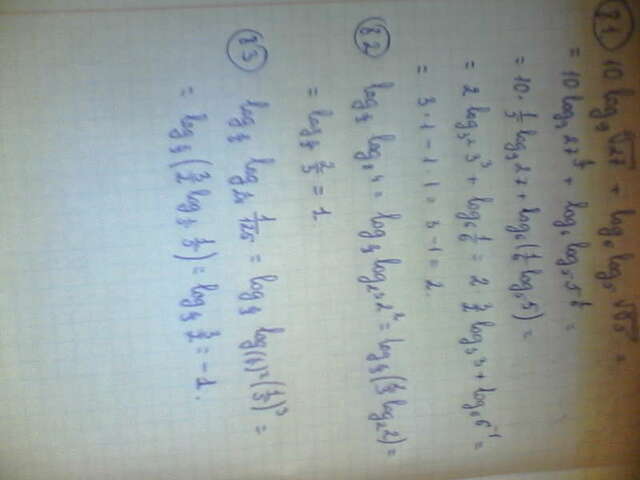 81) 10 log₉ ⁵√27 + log₆ log₅ ⁶√5 =
= 10 log₉ 27^(1/5) + log₆ log₅ 5^(1/6) =
= 10 · 1/5 log₉ 27 + log₆ (1/6 log₅ 5) =
= 2 log₃² 3³ + log₆ 1/6 = 2 · 3/2 log₃ 3 + log₆ 6⁻¹ =
= 3 · 1 − 1 · 1 = 3 − 1 = 2.
82) log log₈ 4 = log log₂³ 2² = log (2/3 log₂ 2) =
= log 2/3 = 1.
83) log log 1/125 = log log (1/5)³ =
= log (3/2 log 1/5) = log 3/2 = −1.